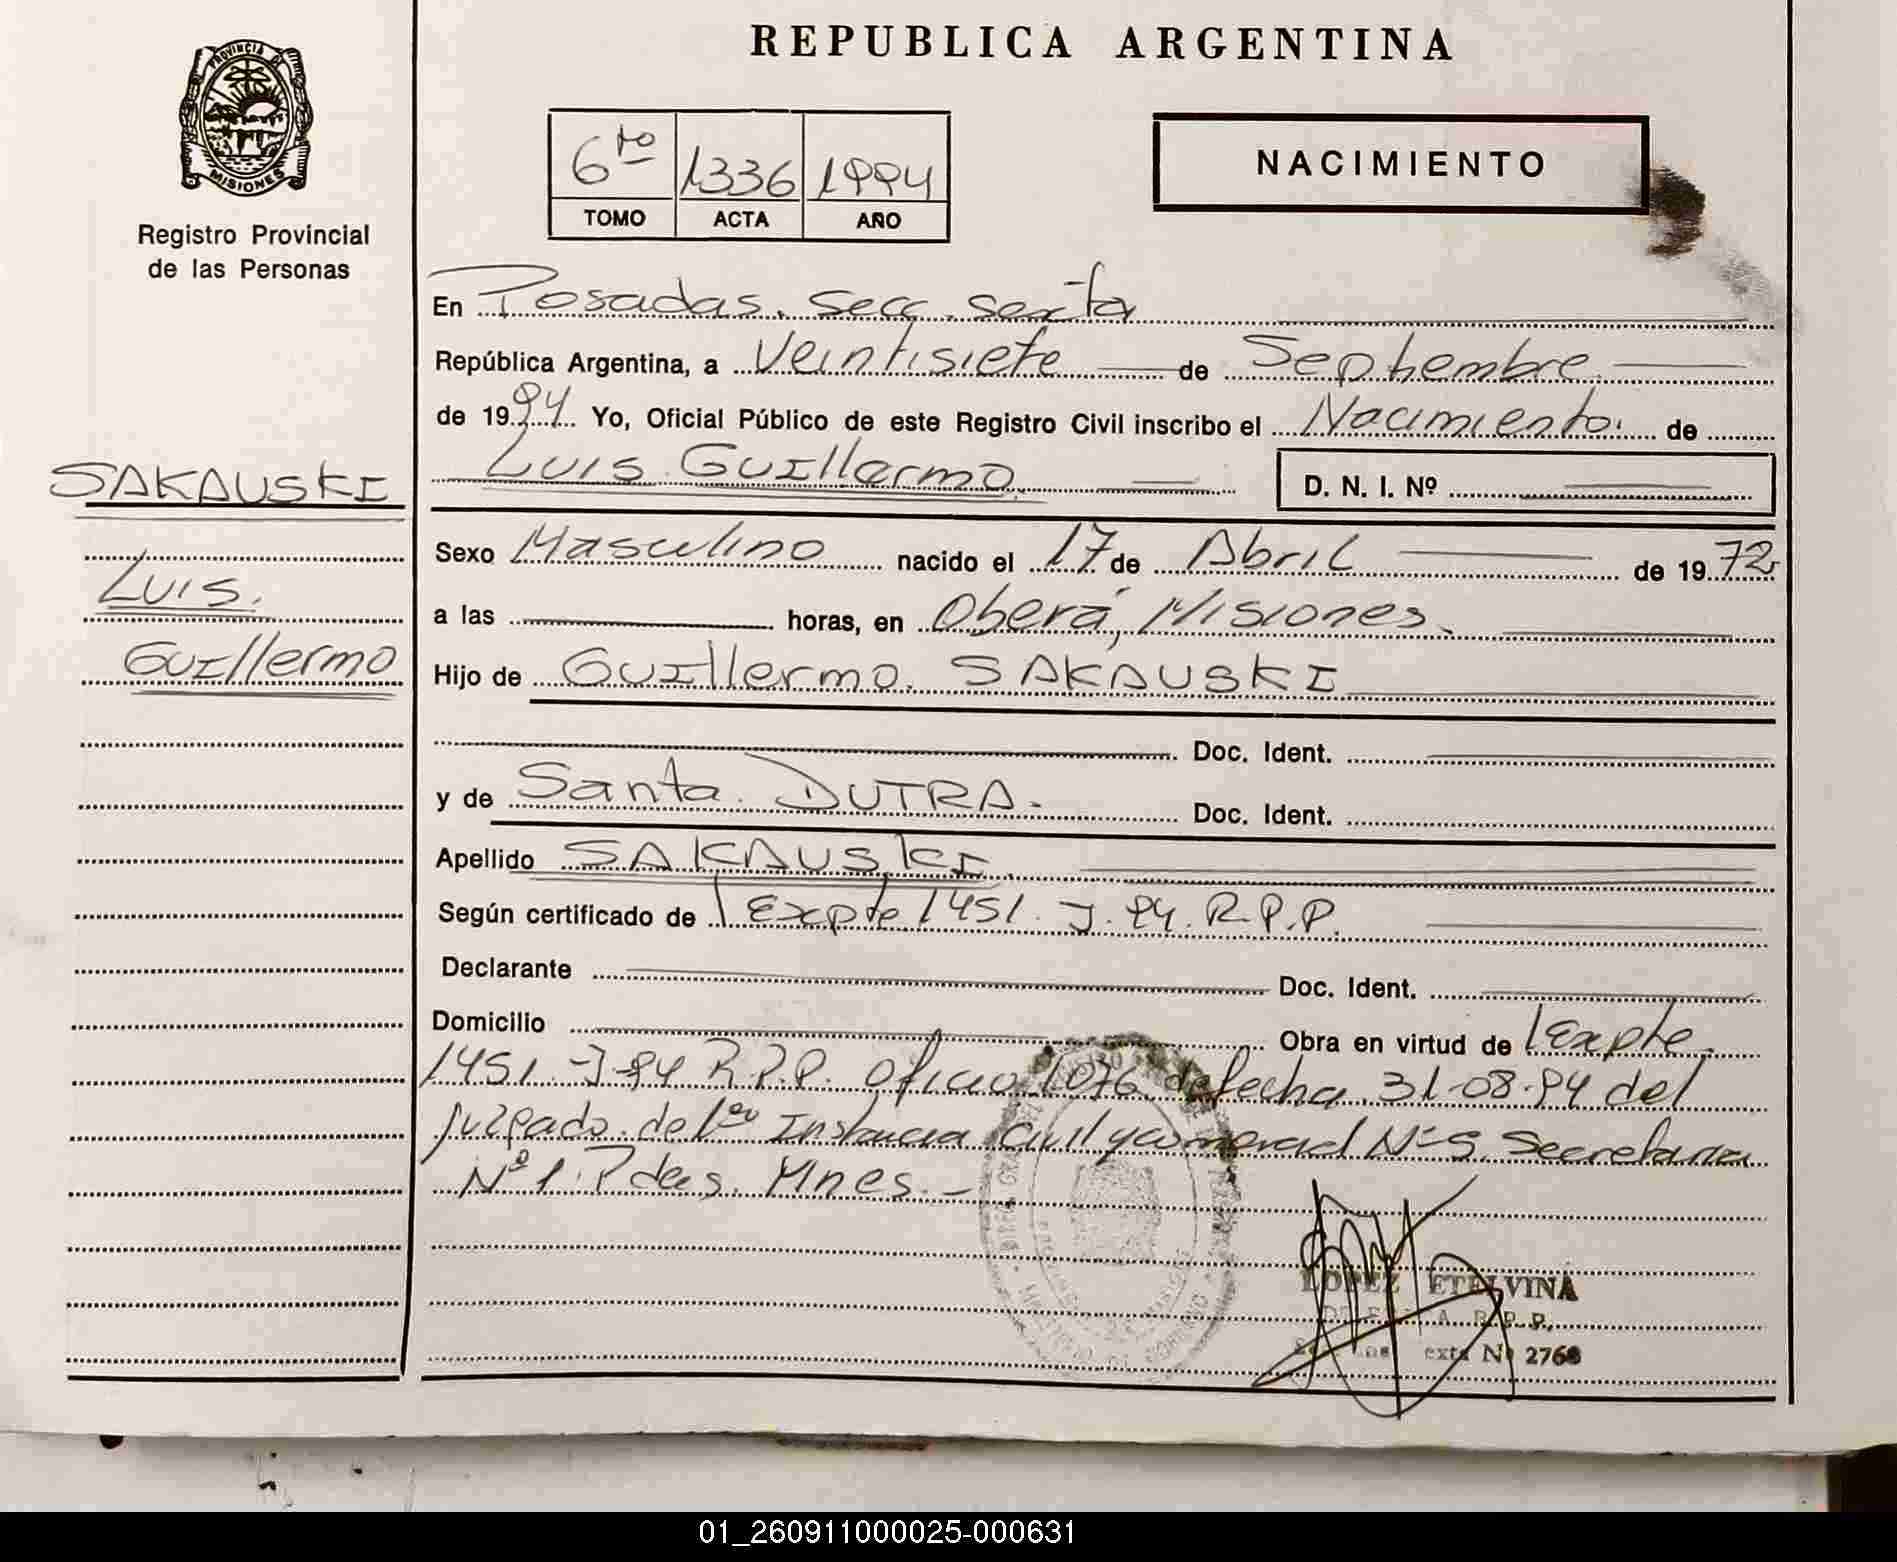 REPUBLICA ARGENTINA
PROVINCIA DE
MISIONES
Registro Provincial
de las Personas
6to 1336 1994
TOMO ACTA AÑO
NACIMIENTO
En Posadas. Secc. sexta
República Argentina, a Veintisiete de Septiembre
de 1994. Yo, Oficial Público de este Registro Civil inscribo el Nacimiento. de
Luis Guillermo D. N. I. Nº
SAKAUSKI
Luis.
Guillermo
Sexo Masculino nacido el 17 de Abril de 1972
a las horas, en Oberá, Misiones.
Hijo de Guillermo. SAKAUSKI
Doc. Ident.
y de Santa. DUTRA. Doc. Ident.
Apellido SAKAUSKI
Según certificado de Expte 1451. J. 94. R.P.P.
Declarante Doc. Ident.
Domicilio Obra en virtud de Expte
1451. J-94 R.P.P. oficio 1076 de fecha 31-08-94 del
juzgado de 1era Instancia civil y comercial Nº 5. Secretaria
Nº 1. Pdas. Mnes.-
LOPEZ ETELVINA
R.P.P.
Nº 2768
01_260911000025-000631